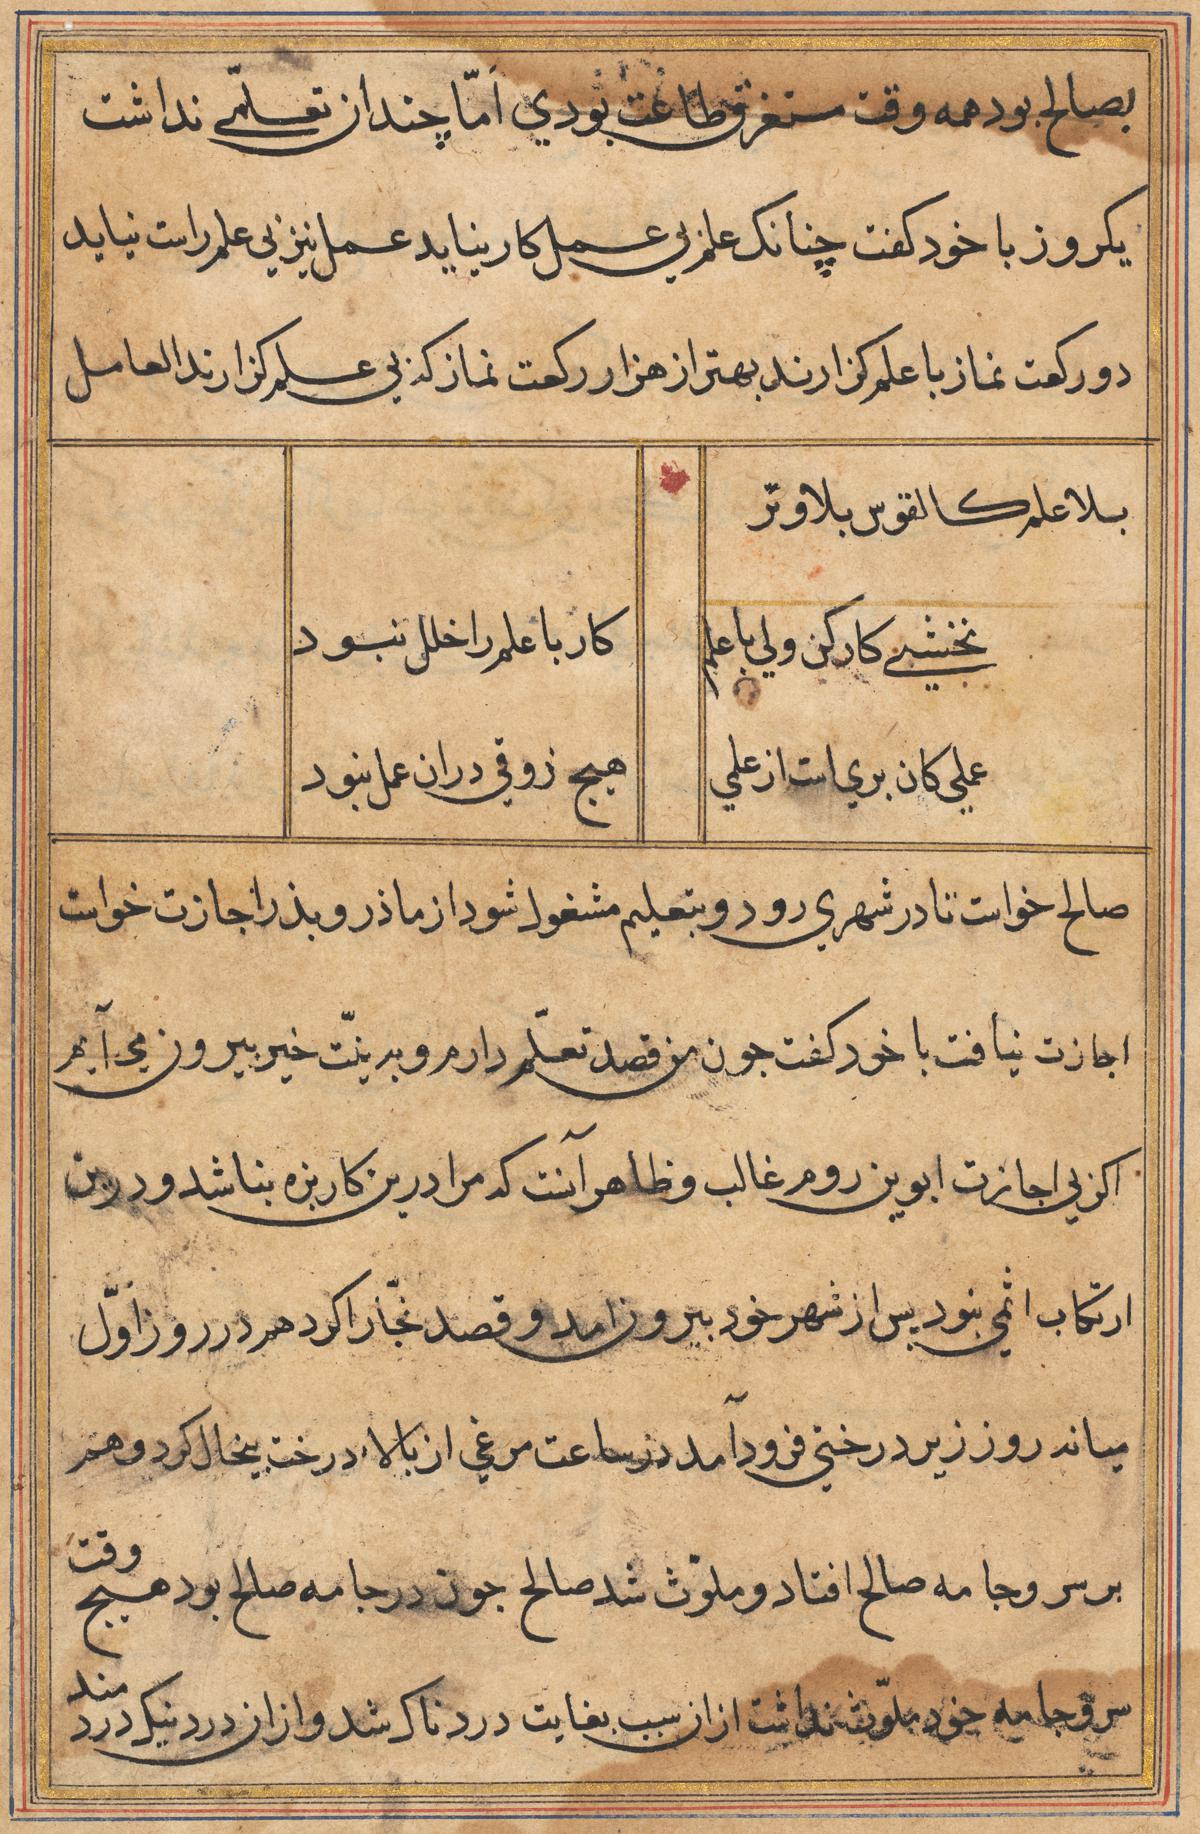 بصالح بود همه وقت مستغرق طاعت بودي امّا چندان تعلّمي نداشت
يكروز با خود كفت چنانک علم بي عمل كار نيايد عمل نيز بي علم راست نيايد
دو ركعت نماز با علم كزارند بهتر از هزار ركعت نماز كه بي علم كزارند العامل
بلا علم كالقوس بلا وتر
نخشبي كار كن ولي با علم كار با علم را خلل نبود
عملي كان بري است از علمي هيچ ذوقي دران عمل نبود
صالح خواست تا در شهري رود و بتعليم مشغول شود از ماذر و پذر اجازت خواست
اجازت نيافت با خود كفت جون من قصد تعلّم دارم و بدين نيّت خير بيرون مي آيم
اكر بي اجازت ابوين روم غالب و ظاهر آنست كه مرا درين كار بزه نباشد و درين
ارتكاب اثمي نبود پس از شهر خود بيرون امد و قصد بخارا كرد هم در روز اوّل
ميانه روز زير درختي فرود آمد در ساعت مرغي از بالاء درخت پيخال كرد و هم
بر سر و جامه صالح افتاد و ملوّث شد صالح جون در جامه صالح بود هيچ وقت
سر و جامه خود ملوّث نداشت ازان سبب بغايت دردناک شد و ازان درد نيک دردمند